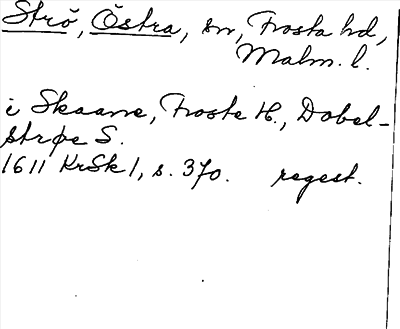 Strö, Östra, sn, Frosta hd,
Malm. l.
i Skaane, Froste H., Dobel-
strøe S.
1611 KrSk 1, s. 370. regest.